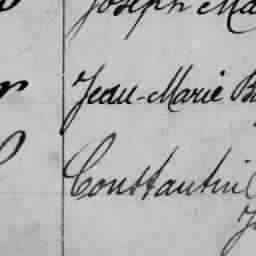 Joseph Ma
Jean-Marie B
Constantin